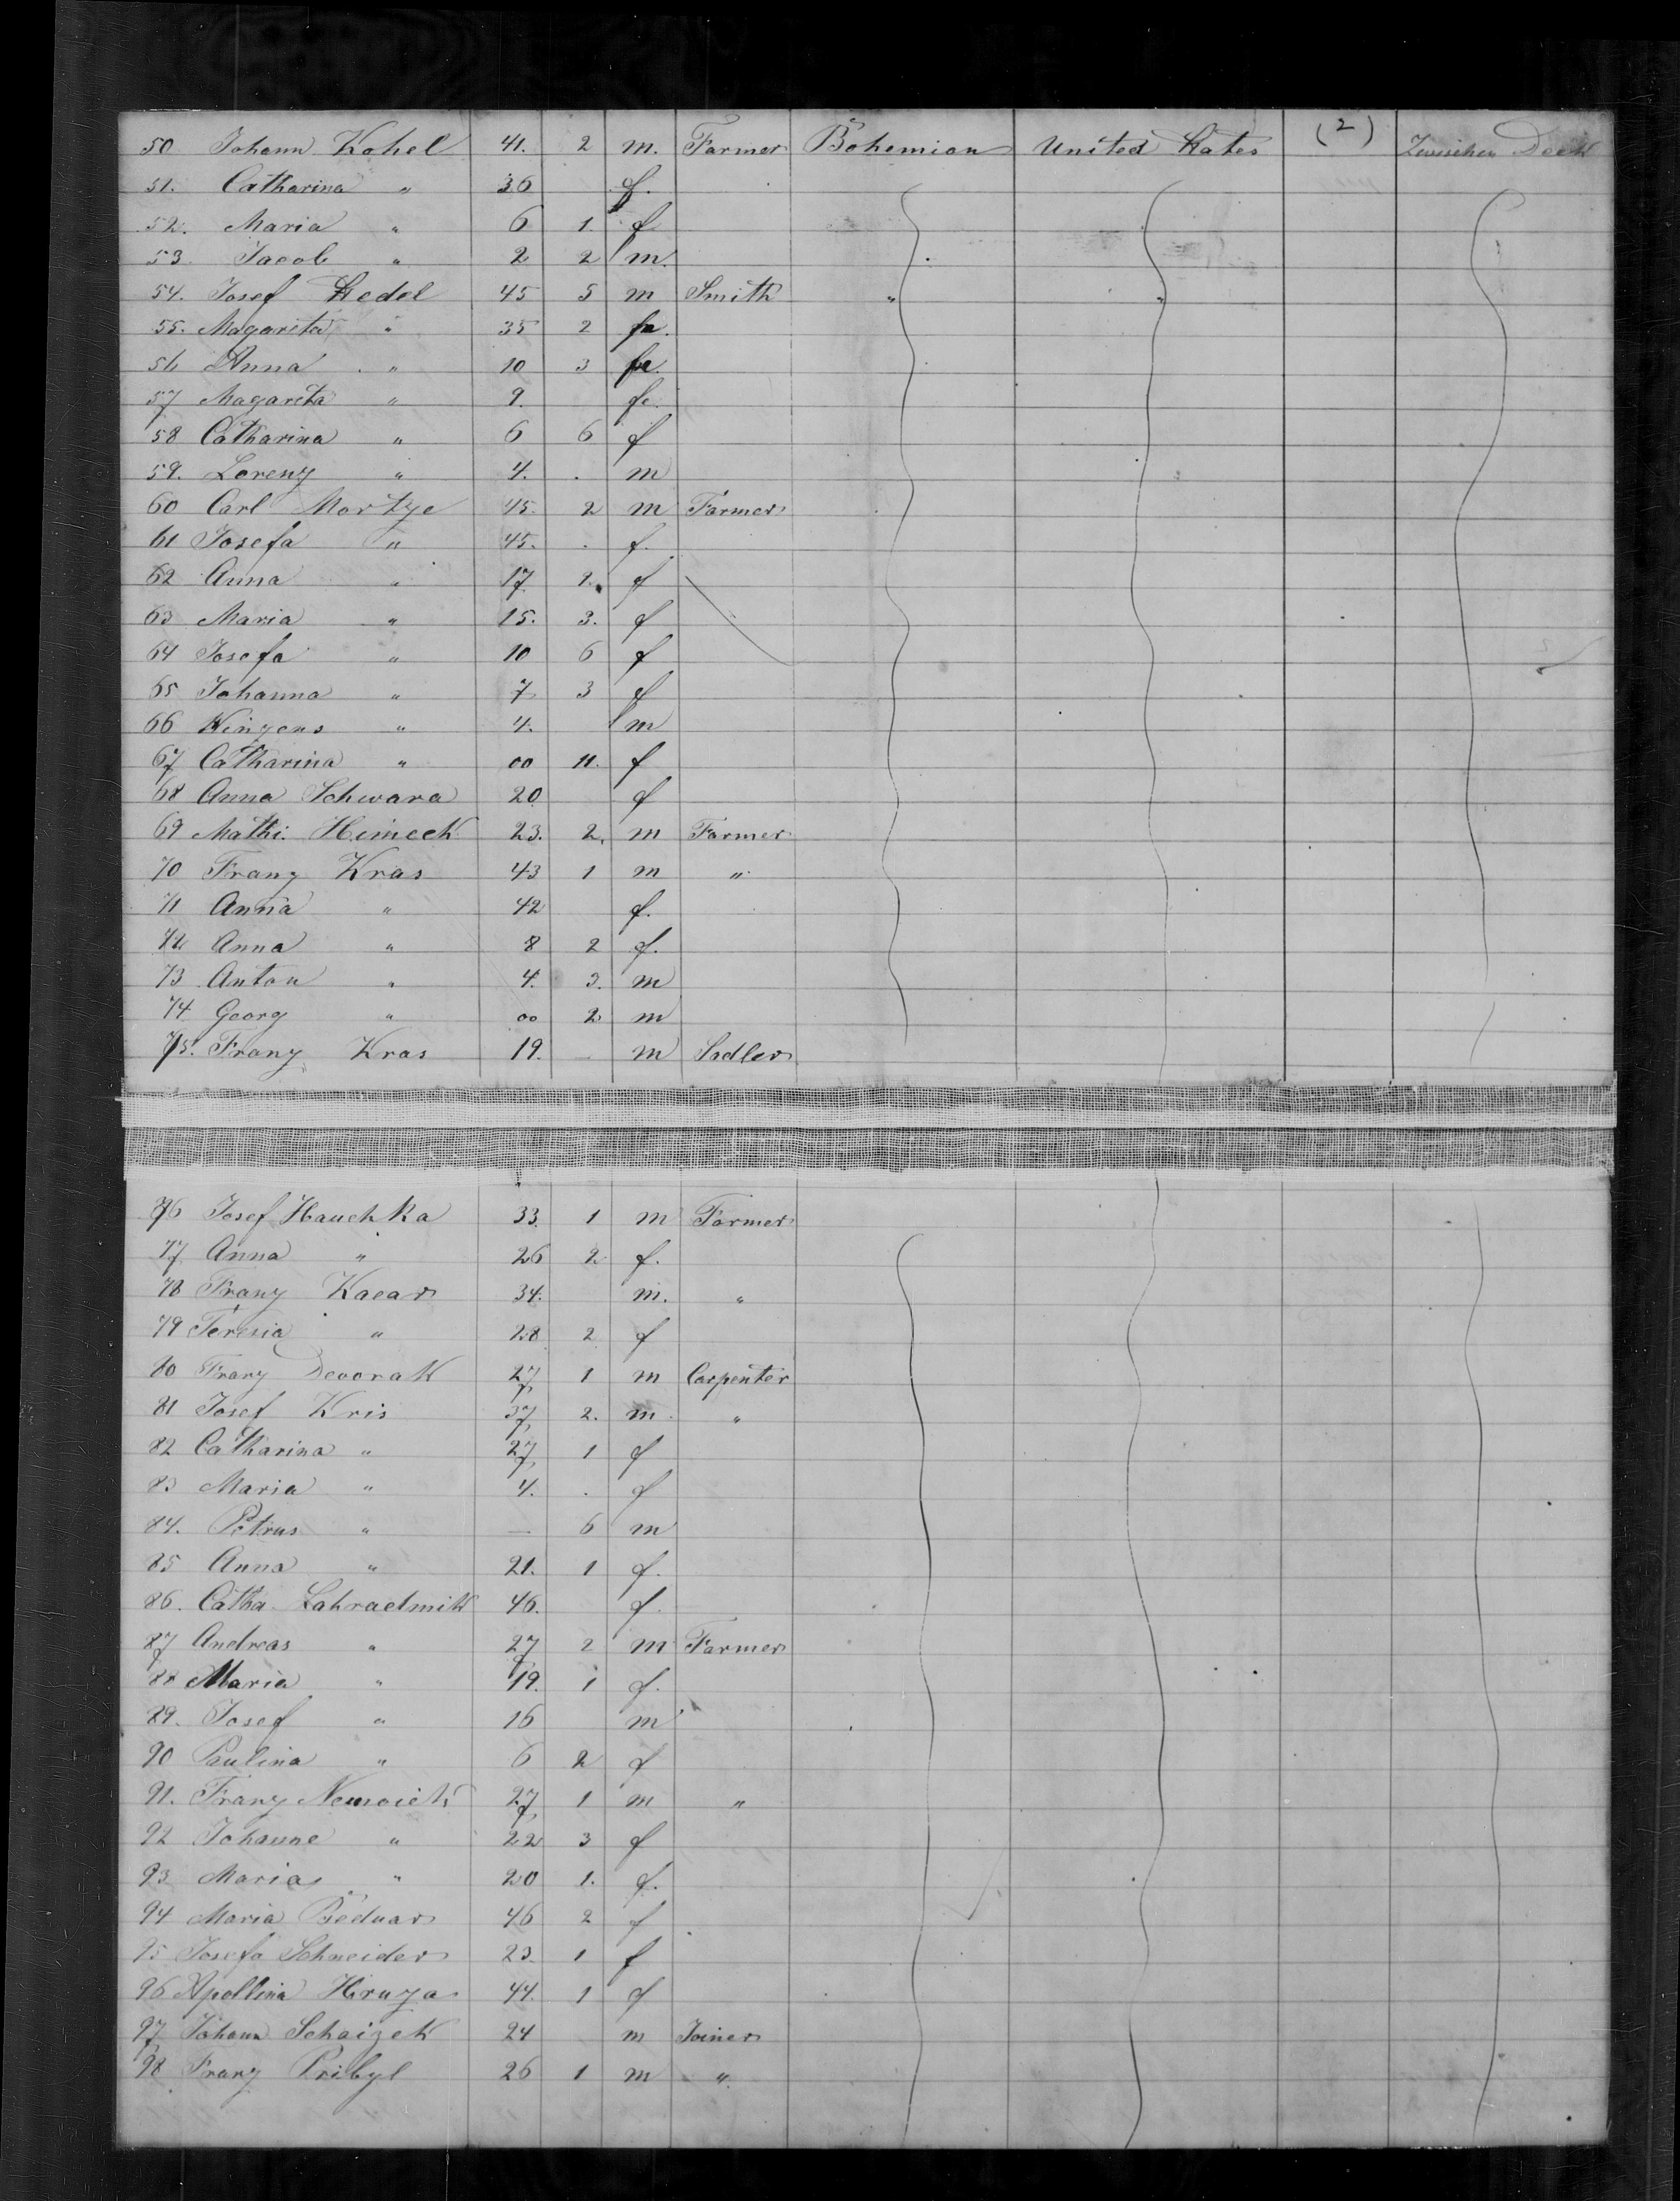 50 Johann Kohel 41. 2 m. Farmer Bohemian United States (2) Zwischen Deck
51. Catharina " 36 f.
52. Maria " 6 1. f
53 Jacob " 2 2 m.
54. Josef Hedel 45 5 m Smith " "
55. Magareta " 35 2 fe.
56 Anna " 10 3 fe.
57 Magareta " 9. fe.
58 Catharina " 6 6 f
59. Lorenz " 4. . m
60 Carl Mortze 45. 2 m Farmer
61 Josefa " 45. . f.
62 Anna " 17 2. f
63 Maria " 15. 3. f
64 Josefa " 10 6 f
65 Johanna " 7 3 f
66 Winzens " 4. m
67 Catharina " 00 11. f
68 Anna Schwara 20 f
69 Mathi. Heineck 23. 2. m Farmer
70 Franz Kras 43 1 m "
71 Anna " 42 f.
72 Anna " 8 2 f.
73 Anton " 4. 3. m
74 Georg " 00 2 m
75. Franz Kras 19. m Sadler
76 Josef Hauchka 33. 1 m Farmer
77 Anna " 26 2 f.
78 Franz Kacar 34. m. "
79 Teresia " 28 2 f
80 Franz Devorak 27 1 m Carpenter
81 Josef Kris 37 2. m "
82 Catharina " 27 1 f
83 Maria " 4. . f
84. Petrus " — 6 m
85 Anna " 21. 1 f.
86. Catha. 46. f.
87 Andreas " 27 2 m Farmer
88 Maria " 19. 1 f.
89. Josef " 16 m
90 Paulina " 6 2 f
91. Franz 27 1 m "
92 Johanne " 22 3 f
93 Maria " 20 1. f.
94 Maria Bednar 46 2 f
95 Josefa Schneider 23. 1 f
96 Apollina Hruza 44. 1 f
97 Johann Schaizek 24 m Joiner
98 Franz Pribyl 26 1 m "